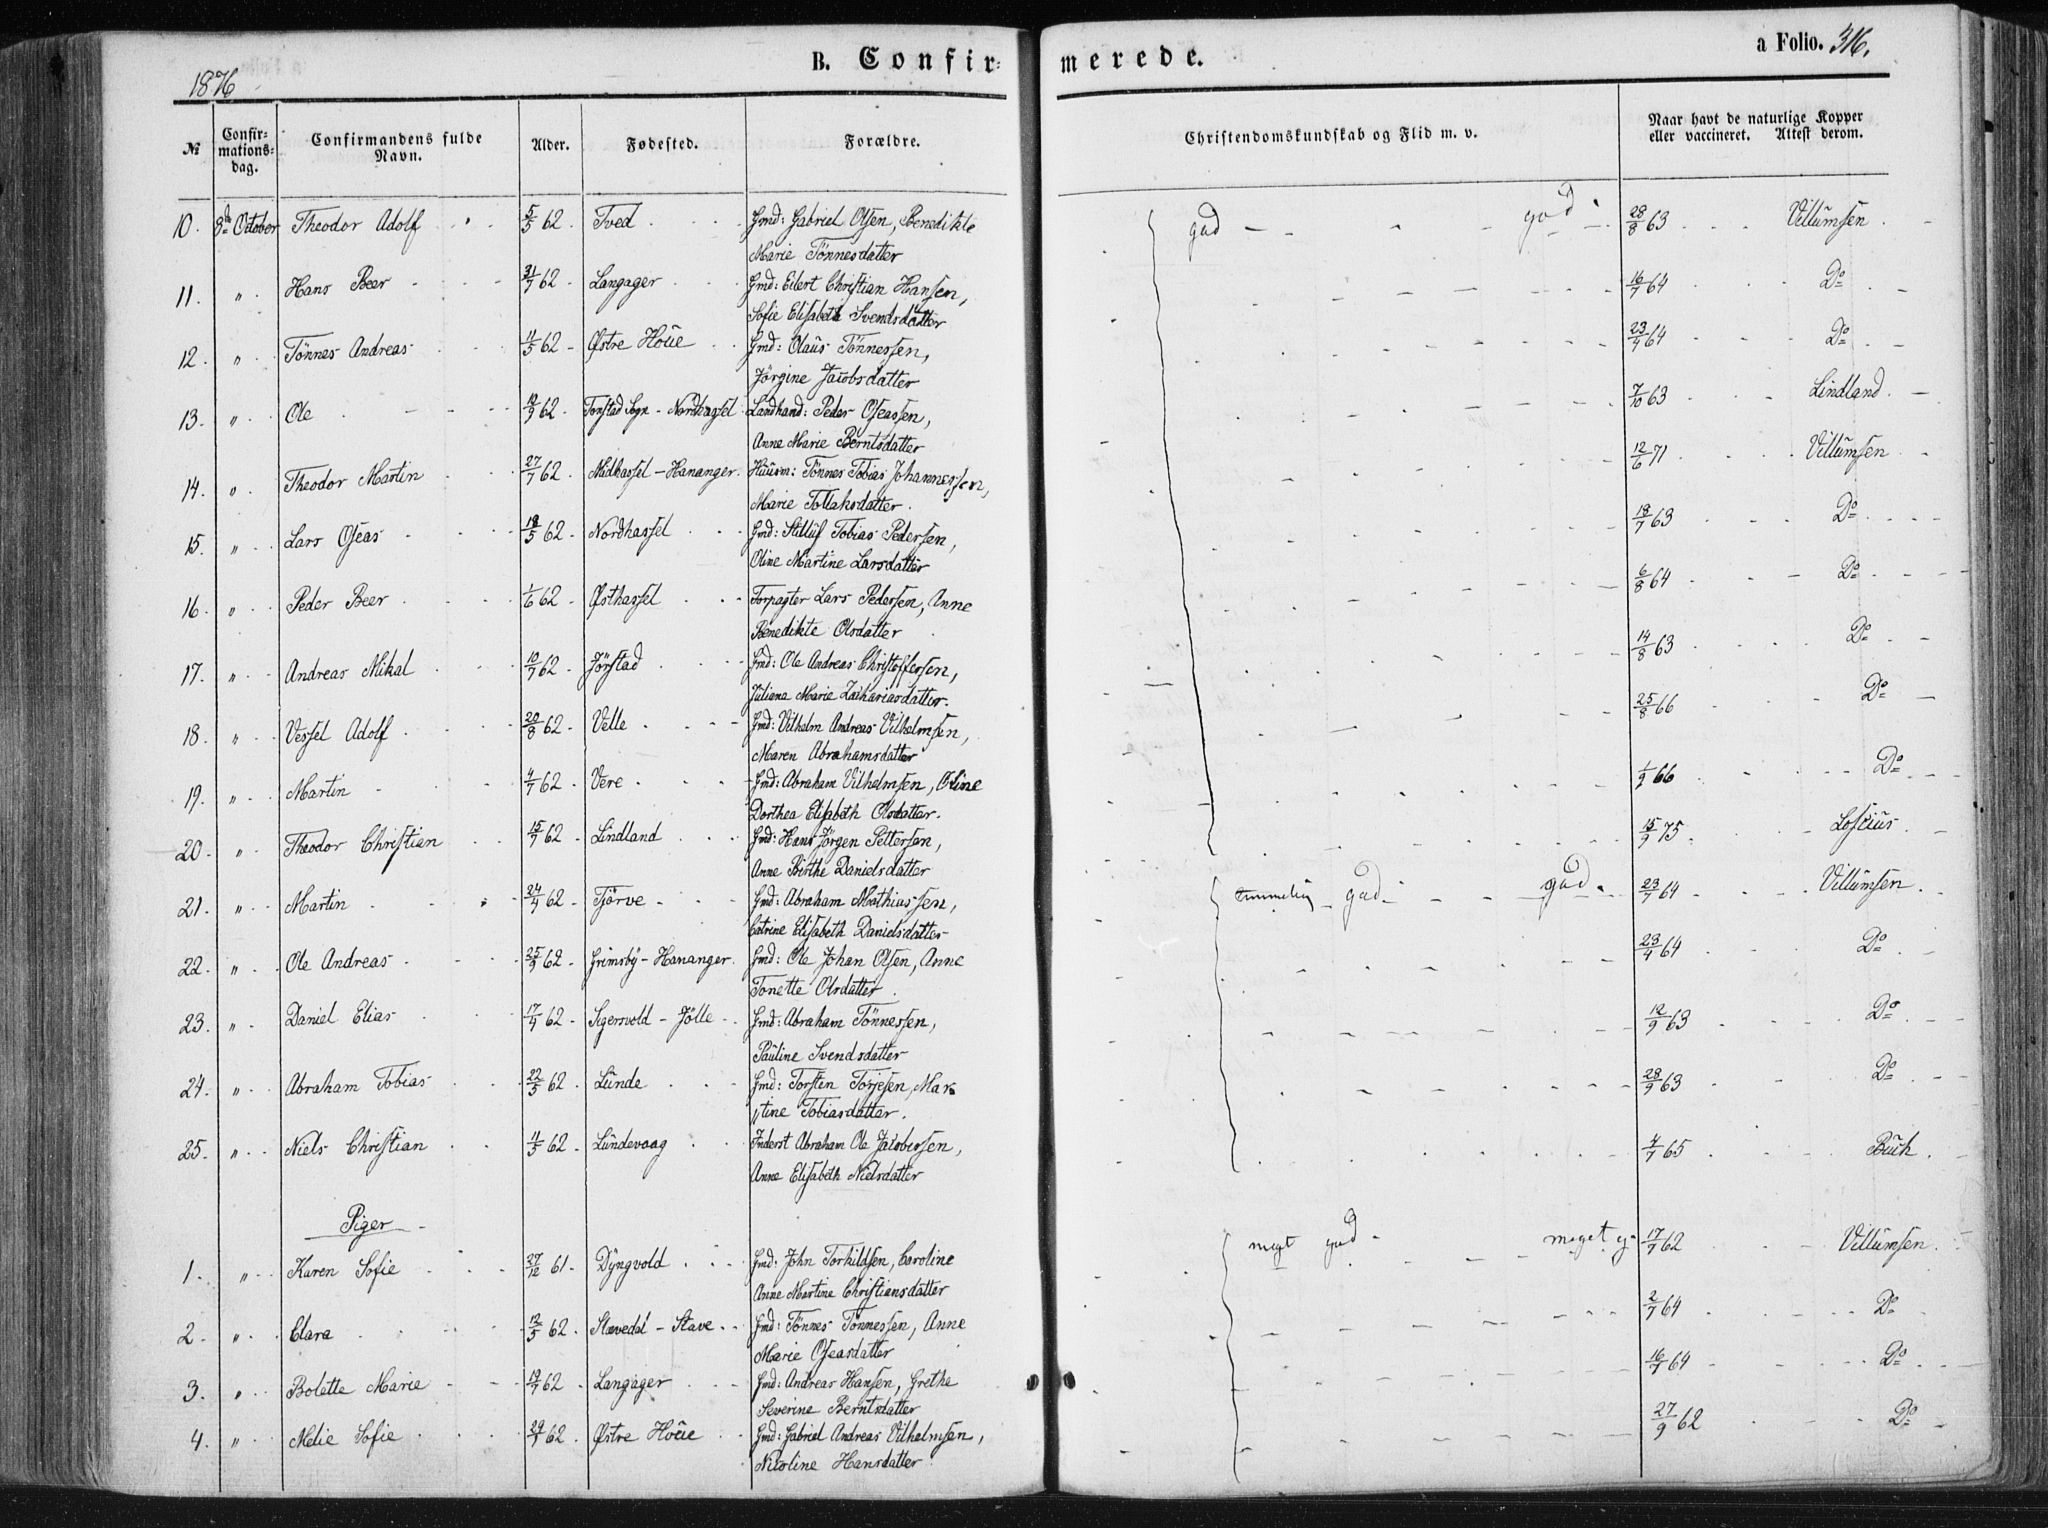 1876
B. Confirmerede.
a Folio. 316.
№ Confirmationsdag. Confirmandens fulde Navn. Alder. Fødested. Forældre. Christendomskundskab og Flid m. v. Naar havt de naturlige Kopper eller vaccineret. Attest derom.
10. 8de October Theodor Adolf 5/5 62 Tved Gmd: Gabriel Olsen, Benedikte god god 28/8 63 Villumsen
Marie Tönnesdatter
11. " Hans Beer 31/7 62 Langager Gmd: Eilert Christian Hansen, 16/7 64 Do
Sofie Elisabeth Svendsdatter
12. " Tönnes Andreas 11/5 62 Østre Houe Gmd: Olaus Tönnessen, 23/4 64 Do
Jörgine Jacobsdatter
13. " Ole 12/9 62 Fonstad Sogn - Nordhassel Landhand: Peder Oseassen, 7/10 63 Lindland
Anne Marie Berntsdatter
14. " Theodor Martin 27/7 62 Midhassel - Hananger Huusm: Tönnes Tobias Johannessen, 12/6 71 Villumsen
Marie Tollaksdatter
15. " Lars Oseas 18/5 62 Nordhassel Gmd: Stilluf Tobias Pedersen, 18/7 63 Do
Oline Martine Larsdatter
16. " Peder Beer 1/6 62 Østhassel Forpagter Lars Pedersen, Anne 6/8 64 Do
Benedikte Olsdatter
17. " Andreas Mikal 10/7 62 Jörstad Gmd: Ole Andreas Christoffersen, 14/8 63 Do
Juliana Marie Zachariasdatter.
18. " Vessel Adolf 20/8 62 Velle Gmd: Vilhelm Andreas Vilhelmsen, 25/8 66 Do
Maren Abrahamsdatter
19. " Martin 4/7 62 Vere Gmd: Abraham Vilhelmsen, Oline 1/9 66 Do
Dorthea Elisabeth Olsdatter.
20. " Theodor Christian 15/7 62 Lindland Gmd: Hans Jörgen Pettersen, 15/9 75 Loscius
Anne Birthe Danielsdatter
21. " Martin 24/4 62 Tjörve Gmd: Abraham Mathiassen, temmelig god god 23/7 64 Villumsen
Catrine Elisabeth Danielsdatter
22. " Ole Andreas 25/9 62 Grimsby - Hananger Gmd: Ole Johan Olsen, Anne 23/4 64 Do
Tonette Olsdatter
23. " Daniel Elias 17/9 62 Sigersvold - Jölle Gmd: Abraham Tönnessen, 12/9 63 Do
Pauline Svendsdatter
24. " Abraham Tobias 22/5 62 Lunde Gmd: Torsten Torjesen, Mar 28/9 63 Do
"tine Tobiasdatter.
25. " Niels Christian 11/5 62 Lundevaag Inderst Abraham Ole Jacobsen, 4/7 65 Buch
Anne Elisabeth Nielsdatter
Piger
1. " Karen Sofie 27/12 61 Dyngvold Gmd: John Torkildsen, Caroline megt god meget g 17/7 62 Villumsen
Anne Martine Christiansdatter
2 " Clara 12/5 62 Stavedal - Stave Gmd: Tönnes Tönnessen, Anne 2/7 64 Do
Marie Oseasdatter
3. " Bolette Marie 19/7 62 Langager Gmd: Andreas Hansen, Grethe 16/7 64 Do
Severine Berntsdatter
4. " Melie Sofie 29/7 62 Østre Houe Gmd: Gabriel Andreas Vilhelmsen, 27/9 62 Do
Nicoline Hansdatter